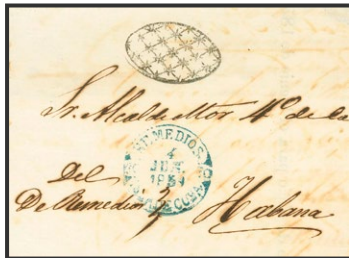 Sr. Alcalde Mor. 4º de la
REMEDIOS
4
JUN
Del
De Remedios
Habana